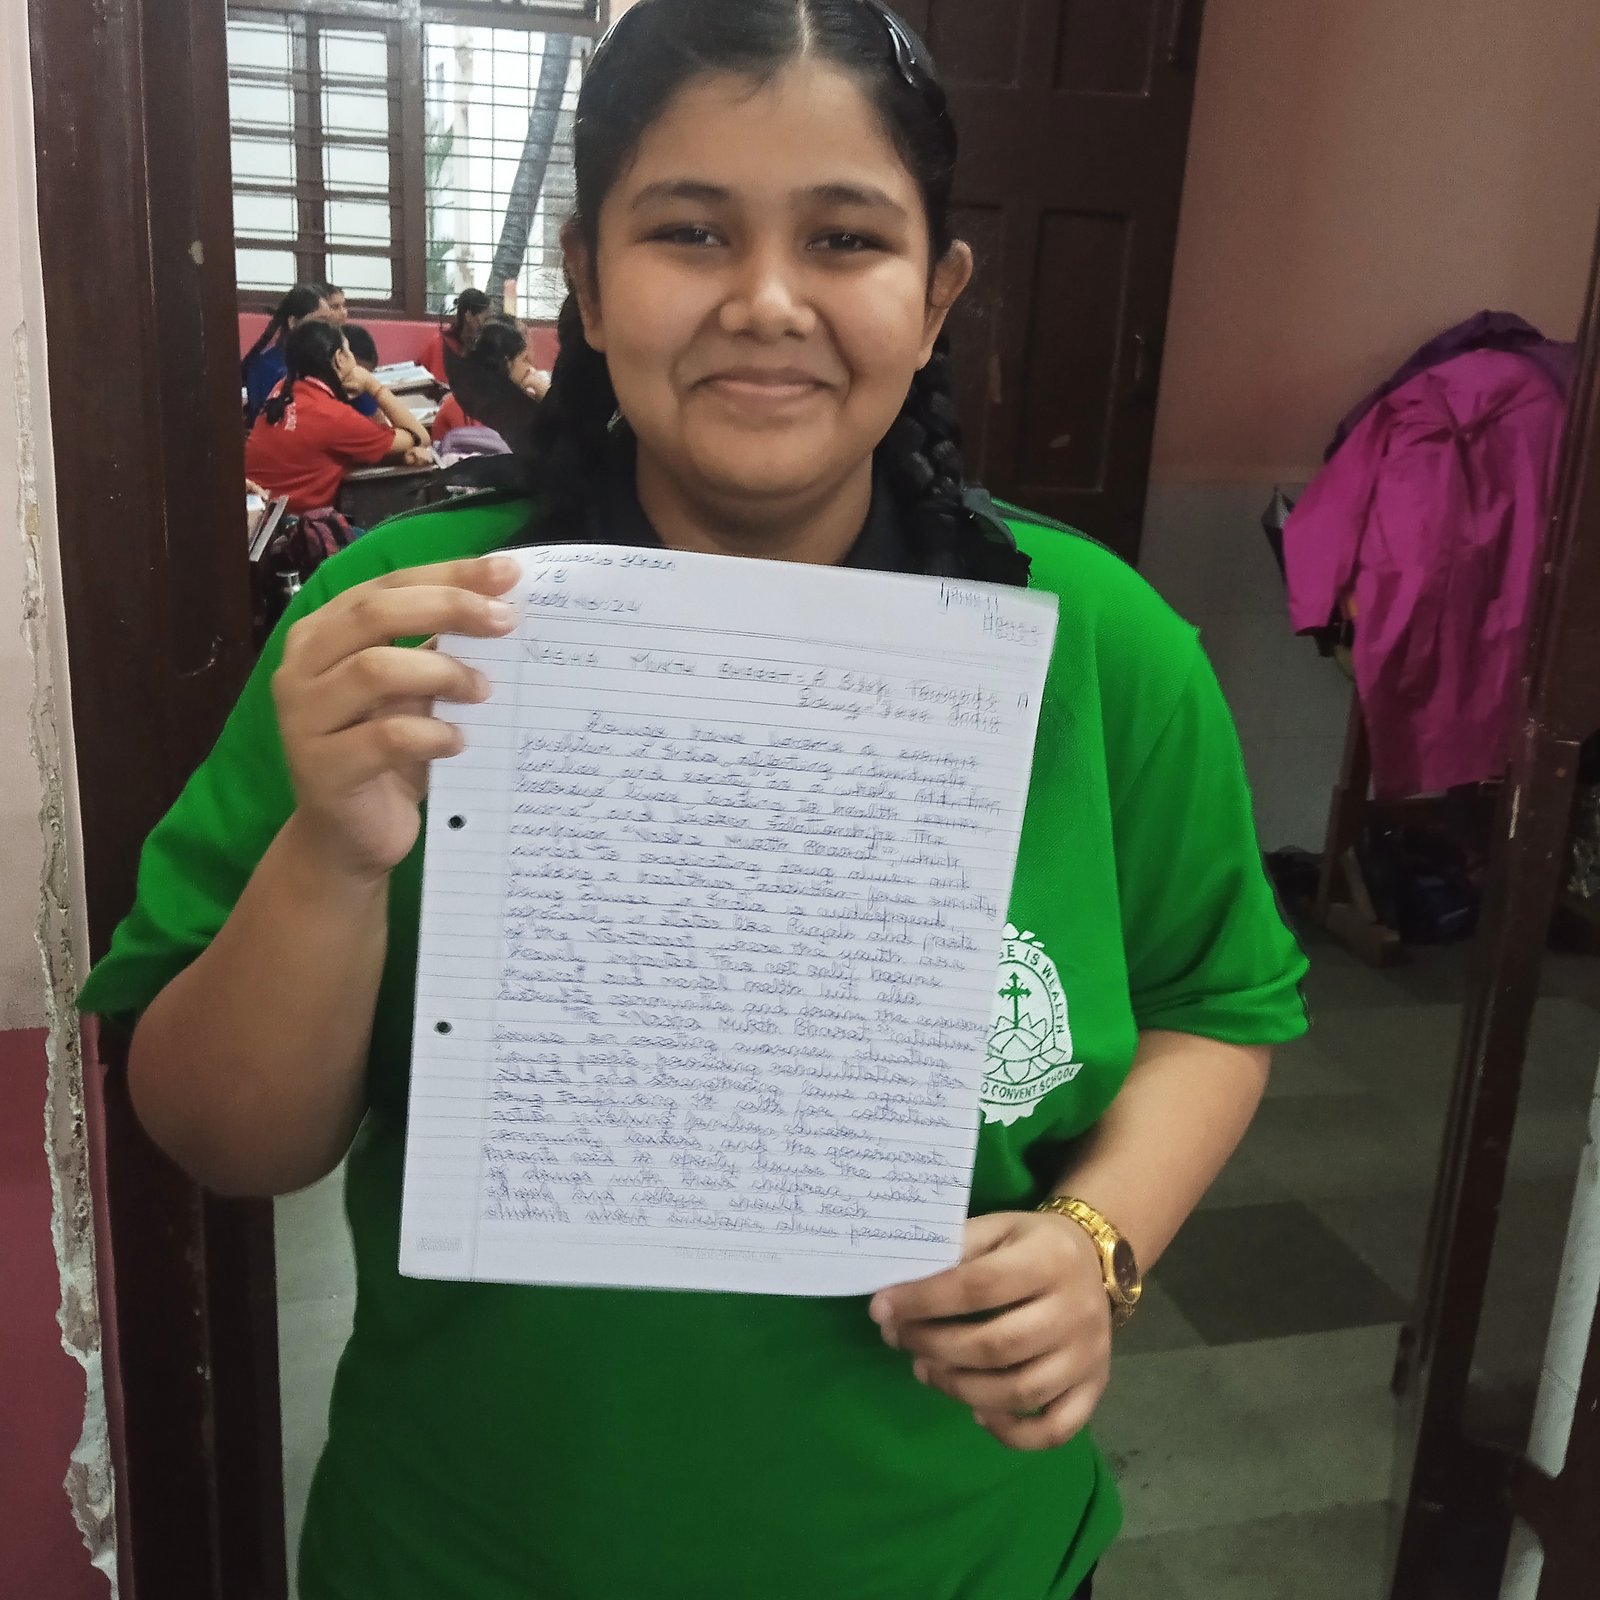 Khan
X B
Roll No: 24
NASHA MUKTA BHARAT - A Step Towards A
Drug-Free India
Drugs have become a serious
problem in India, affecting individuals,
families, and society as a whole. Addiction
destroys lives, leading to health issues,
crime, and broken relationships. The
campaign "Nasha Mukth Bharat", which
aimed to eradicating drug abuse and
building a healthier, addiction-free society
Drug abuse in India is widespread,
especially in states like Punjab and parts
of the Northeast where the youth are
heavily impacted. This not only harms
physical and mental health but also
communities and drains the economy
The "Nasha Mukth Bharat" initiative
focuses on creating awareness, educating
young people, providing rehabilitation for
addicts, and strengthening laws against
drug trafficking. It calls for collective
action involving families, educators,
community leaders, and the government.
Parents need to openly discuss the dangers
of drugs with their children, while
schools and colleges should teach
students about substance abuse prevention
E IS WEALTH
O CONVENT SCHOOL